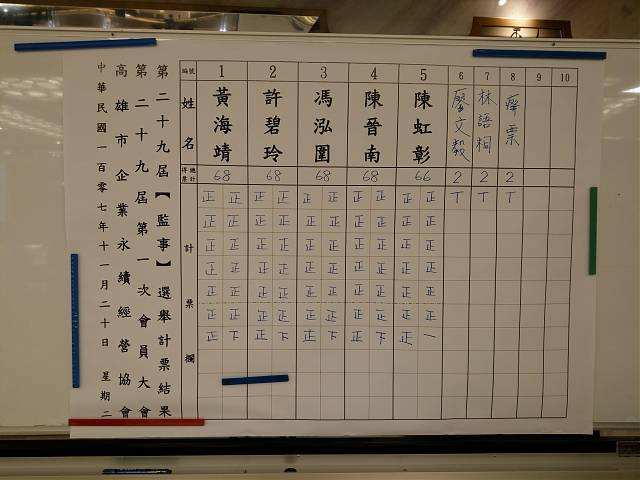 第二十九屆【監事】選舉計票結果
第二十九屆第一次會員大會
高雄市企業永續經營協會
中華民國一百零七年十一月二十日 星期二
編號 1 2 3 4 5 6 7 8 9 10
姓名 黃海靖 許碧玲 馮泓圍 陳晉南 陳虹彰 廖文毅 林語桐 廢票
總計得票 68 68 68 68 66 2 2 2
計票欄
正 正 正 正 正 正 正 正 正 正 丅 丅 丅
正 正 正 正 正 正 正 正 正 正
正 正 正 正 正 正 正 正 正 正
正 正 正 正 正 正 正 正 正 正
正 正 正 正 正 正 正 正 正 正
正 正 正 正 正 正 正 正 正 正
正 下 正 下 正 下 正 下 正 一